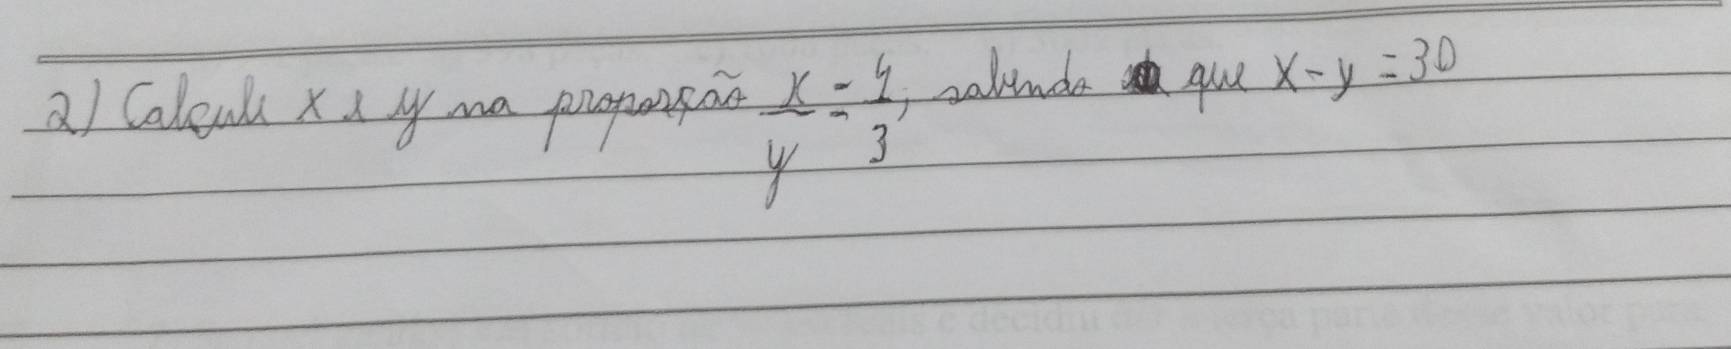 2) Calcule x e y na proporção x/y = 4/3, sabendo que x - y = 30